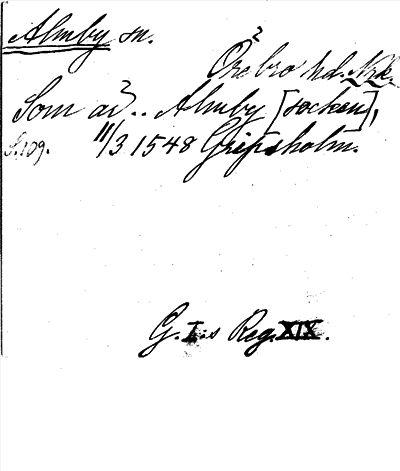 Almby sn.
Örebro hd. Nrk.
Som av.. Almby [socken],
S.109. 11/3 1548 Gripsholm.
G. I:s Reg. XIX.